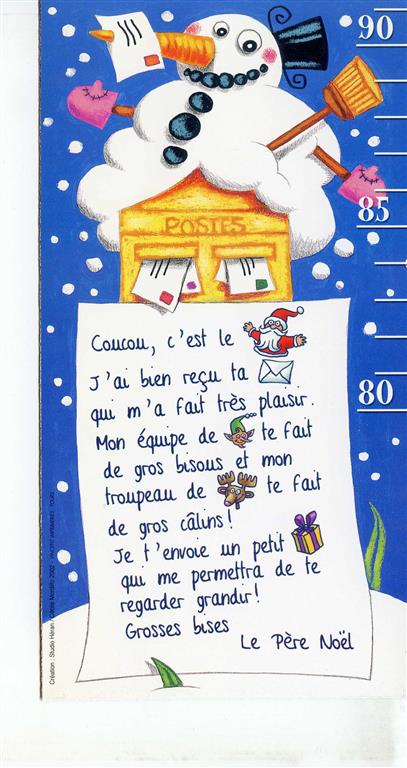 90
POSTES
85
Coucou, c'est le
J'ai bien reçu ta
80
qui m'a fait très plaisir.
Mon équipe de te fait
de gros bisous et mon
troupeau de te fait
de gros câlins !
Je t'envoie un petit
qui me permettra de te
regarder grandir !
Grosses bises
Le Père Noël
Création : Studio Héran / Cécile 2002 - VINCENT IMPRIMERIES TOURS